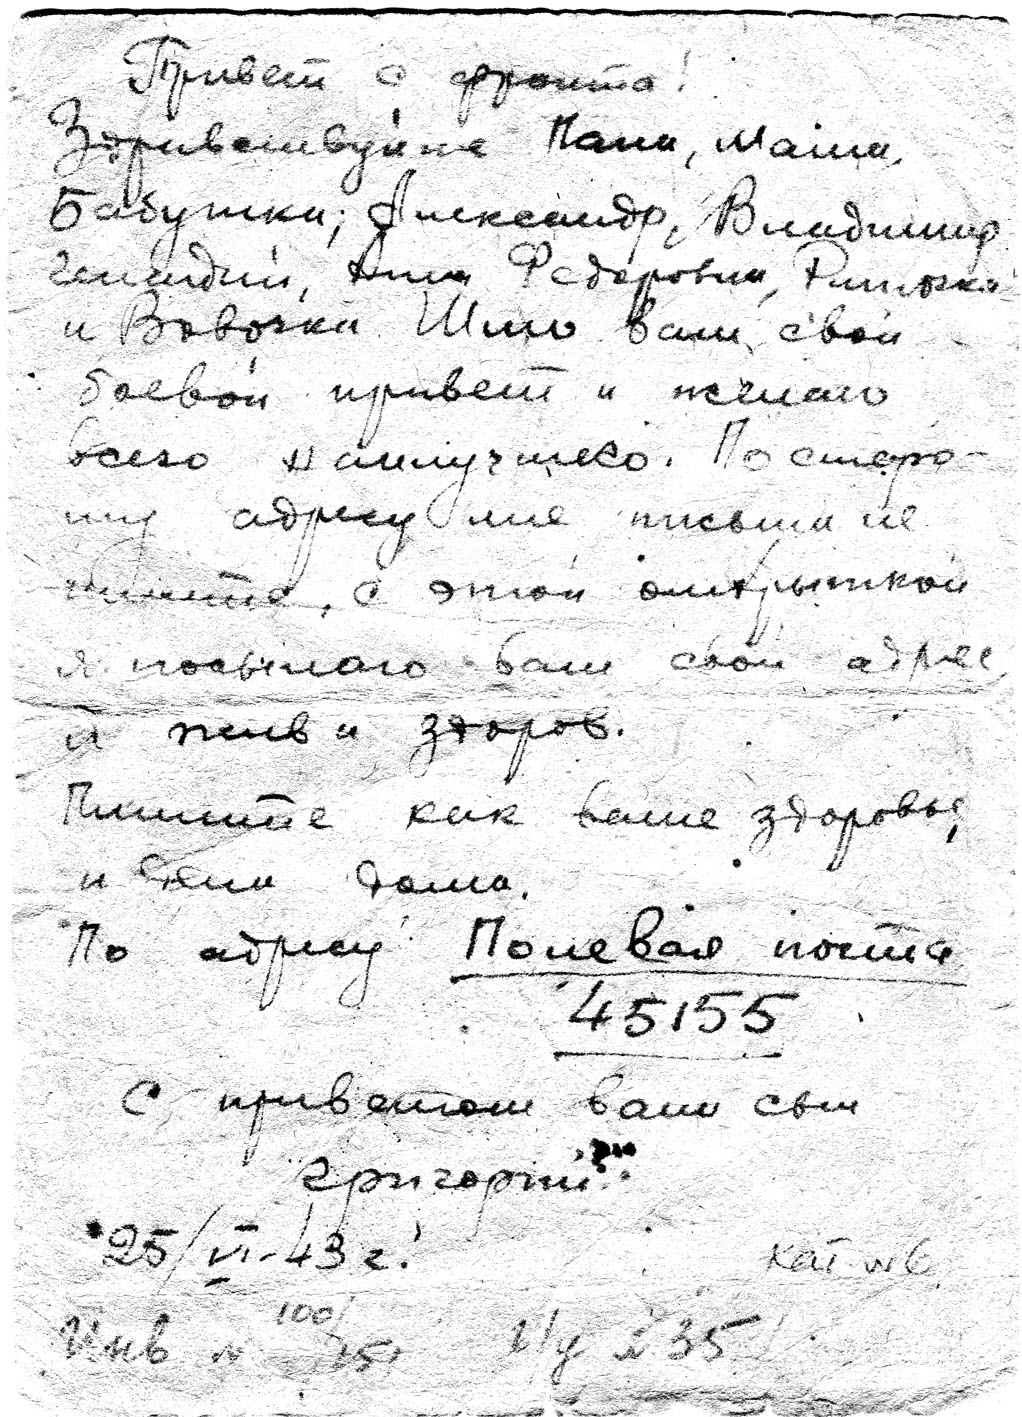 Привет с фронта!
Здравствуйте Папа, мама,
Бабушка, Александр, Владимир
Генадий, Анна Федоровна, Римочка
и Вовочка Шлю вам свой
боевой привет и желаю
всего наилучшего. По старо-
му адресу мне письма не
пишите, с этой открыткой
я посылаю вам свой адрес
Я жив и здоров.
Пишите как ваше здоровье,
и дома.
По адресу: Полевая почта
45155
С приветом ваш сын
Григорий
25/VI-43 г.
Кат №6
100
Инв №
И/у №35